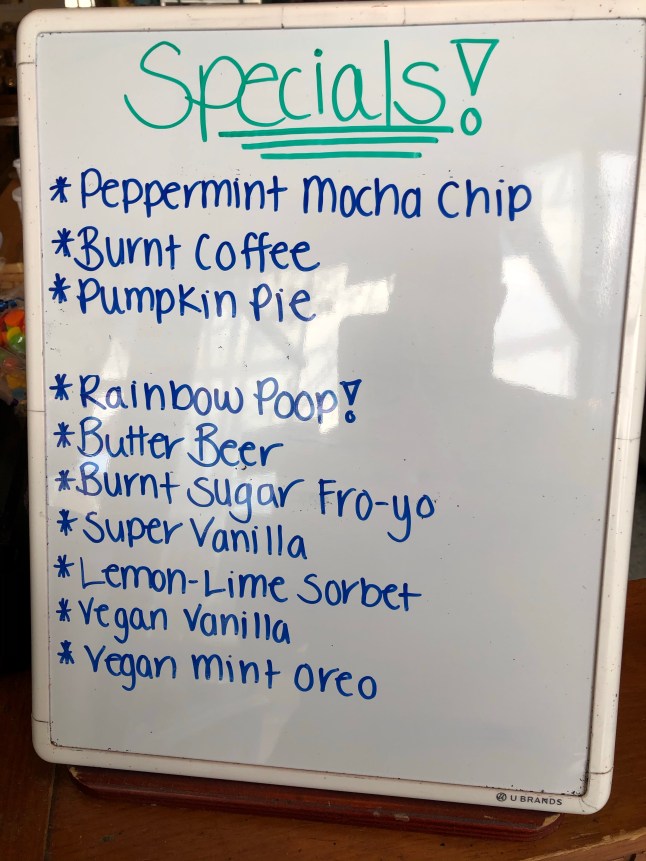 Specials!
* Peppermint Mocha Chip
* Burnt Coffee
* Pumpkin Pie
* Rainbow Poop!
* Butter Beer
* Burnt Sugar Fro-yo
* Super Vanilla
* Lemon-Lime Sorbet
* Vegan Vanilla
* Vegan mint oreo
U BRANDS